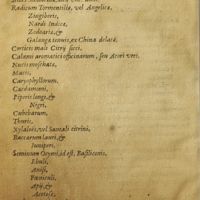 Radicum Tormentillæ, vel Angelicæ,
Zingiberis,
Nardi Indicæ,
Zedoariæ, &
Galanga tenuis, ex China delatæ.
Corticis mali Citrij sicci,
Calami aromatici officinarum, seu Acori veri.
Nucis moschatæ,
Macis,
Caryophyllorum,
Cardamomi,
Piperis longi, &
Nigri,
Cubebarum,
Thuris,
Xyloaloës, vel Santali citrini,
Baccarum Lauri, &
Juniperi,
Seminum Ocymi, id est, Basiliconis,
Ebuli,
Anisi,
Fœniculi,
Apij, &
Acetosæ